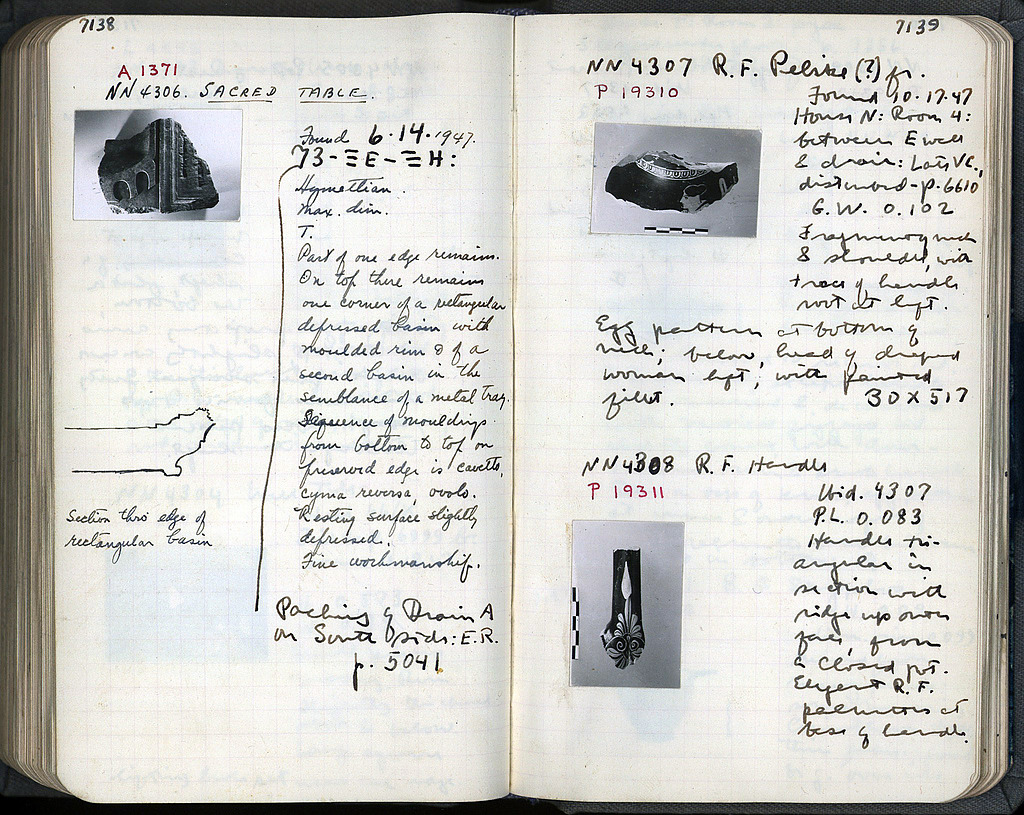 7138
A 1371
NN 4306. SACRED TABLE.
Found 6.14.1947.
73-ΞE-ΞH:
Hymettian.
Max. dim.
T.
Part of one edge remains.
On top there remains
one corner of a rectangular
depressed basin with
moulded rim & of a
second basin in the
semblance of a metal tray.
Sequence of mouldings
from bottom to top on
preserved edge is cavetto,
cyma reversa, ovolo.
Resting surface slightly
depressed.
Fine workmanship.
Section thro' edge of
rectangular basin
Packing of Drain A
on South side: E.R.
p. 5041
7139
NN 4307 R.F. Pelike (?) fr.
P 19310
Found 10.17.47
House N: Room 4:
between E well
& drain: Late V c.,
disturbed - p. 6610
G.W. 0.102
Fragment of neck
& shoulder, with
trace of handle
root at left.
Egg pattern at bottom of
neck; below, head of draped
woman left, with painted
fillet.
30 X 517
NN 4308 R.F. Handle
P 19311
Ibid. 4307
P.L. 0.083
Handle tri-
angular in
section with
ridge up outer
face, from
a closed pot.
Elegant R.F.
palmettes at
base of handle.